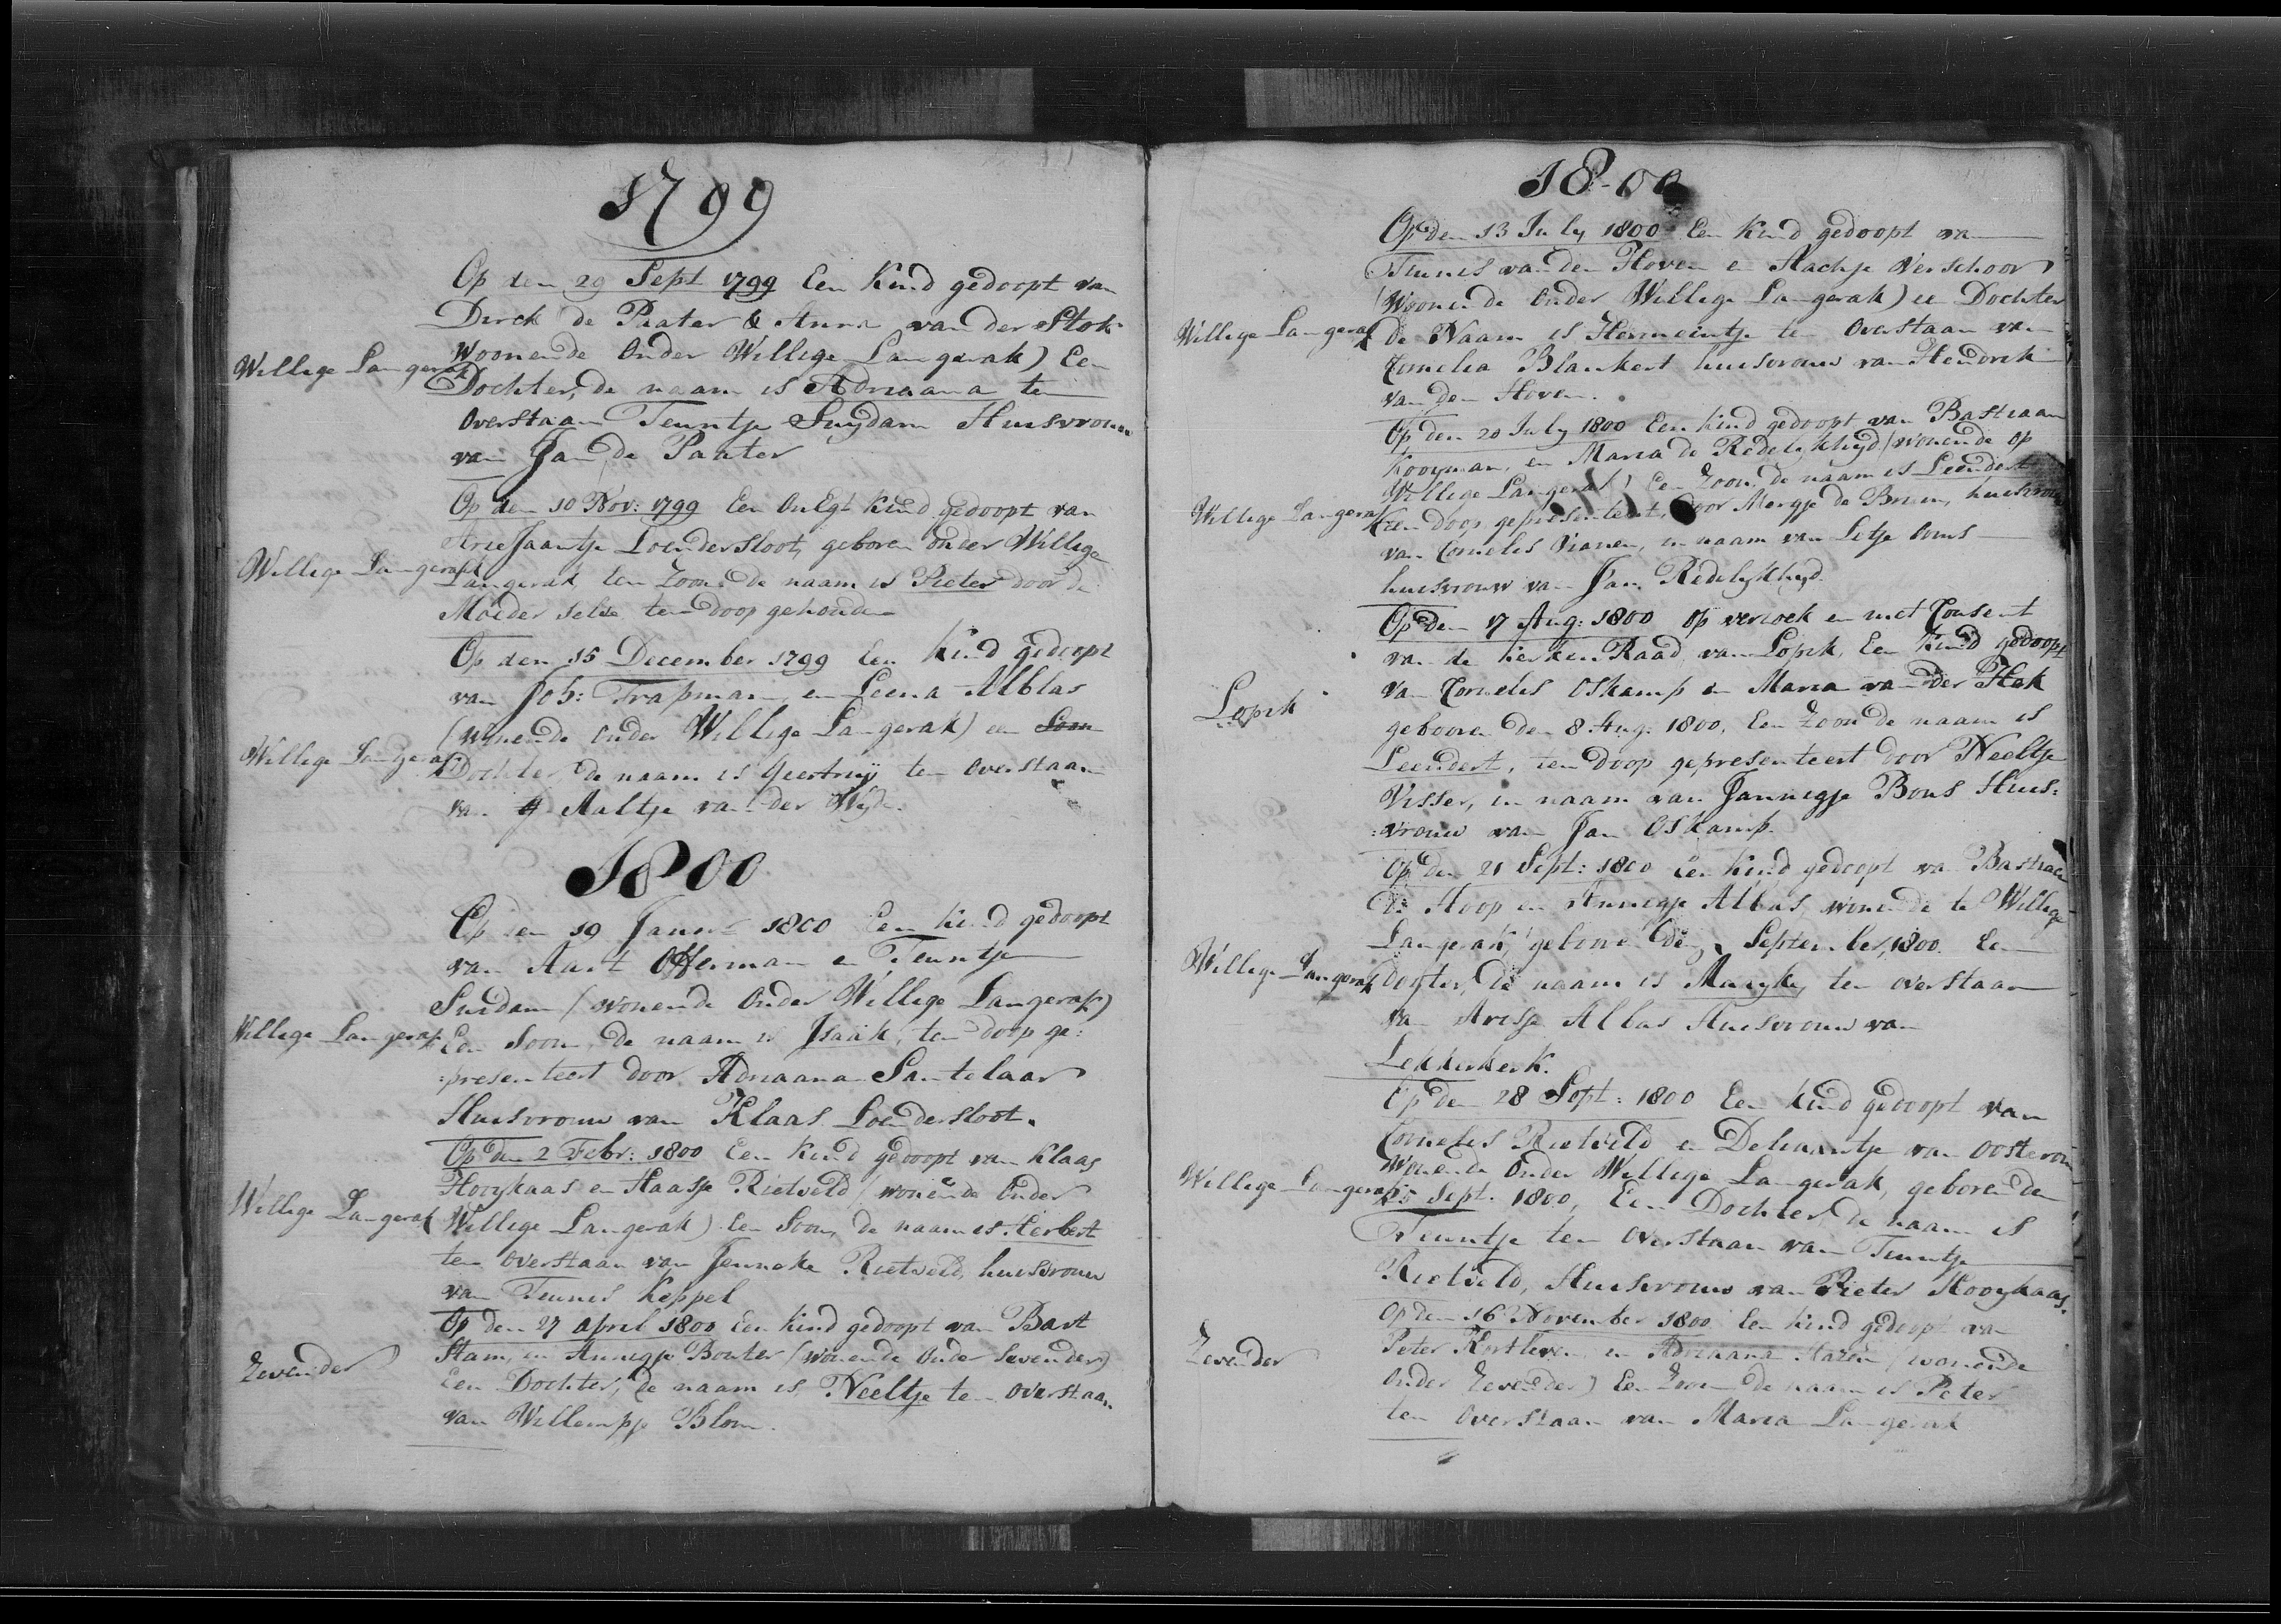 1799
Op den 29 Sept 1799 Een Kind gedoopt van
Dirck de Paater & Anna van der Stok
Woonende onder Willige Langerak) Een
Willige Langerak
Dochter, de naam is Adriaana ten
overstaan Teuntje Suijdam Huisvrouw
van Jan de Paater
Op den 10 Nov: 1799 Een onEgt kind gedoopt van
Ariejaantje Loendersloot, geboren onder Willige
Willige Langerak
Langerak een Zoon de naam is Pieter door de
Moeder selve ten doop gehouden
Op den 15 December 1799 Een kind gedoopt
van Joh: Trapman en Leena Alblas
(wonende onder Willige Langerak) een
Willige Langerak
Dochter, de naam is Geertruij ten overstaan
van Aaltje van der Wijde.
1800
Op den 19 Januari 1800 Een kind gedoopt
van Aart Offerman en Teuntje
Suidam (wonende onder Willige Langerak)
Willige Langerak
Een Soon, de naam is Isaäk, ten doop ge:
:presenteert door Adriaana Santelaar
Huisvrouw van Klaas Loendersloot.
Op den 2 Febr: 1800 Een kind gedoopt van Klaas
Hooijkaas en Haasje Rietveld (wonende onder
Willige Langerak
Willige Langerak) Een Soon, de naam is Herbert
ten overstaan van Jenneke Rietveld, huisvrouw
van Teunis Keppel
Op den 27 april 1800 Een kind gedoopt van Bart
Stam, en Annigje Bouter (wonende onder Sevender)
Zevender
Een Dochter, de naam is Neeltje ten overstaan
van Willempje Blom.
18-00
Op den 13 July 1800 Een Kind gedoopt van
Teunis van den Hoven en Aachje Verschoor
(Woonende onder Willige Langerak) een Dochter
Willige Langerak
de Naam is Hermeintje ten overstaan van
Cornelia Blankert huisvrouw van Hendrik
van den Hoven.
Op den 20 July 1800 Een kind gedoopt van Bastiaan
Kooijman, en Maria de Redelykheyd (wonende op
Willige Langerak) Een Zoon, de naam is Leendert
Willige Langerak
ten doop gepresenteert, door Mergje de Bruin, huisvrouw
van Cornelis Vianen, in naam van
huisvrouw van Jan Redelykheyd.
Op den 17 Aug: 1800 op versoek en met Consent
van de kerken Raad van Lopik, Een Kind gedoopt
Lopik
van Cornelis Oskamp en Maria van der Hak
gebooren den 8 Aug: 1800, Een Zoon de naam is
Leendert, ten doop gepresenteert door Neeltje
Visser, in naam van Jannigje Bons Huis:
:vrouw van Jan Oskamp.
Op den 21 Sept: 1800 Een kind gedoopt van Bastiaan
de Hoop en Annigje Alblas, wonende te Willige
Langerak, geboren den September, 1800. Een
Willige Langerak
dogter, de naam is Marijke, ten overstaan
van Alblas Huisvrouw van
Lekkerkerk.
Op den 28 Sept: 1800 Een kind gedoopt van
Cornelis Rietveld en Deliaantje van Oosterom
Wonende onder Willige Langerak, geboren den
Willige Langerak
Sept. 1800, Een Dochter, de naam is
Teuntje ten overstaan van Teuntje
Rietveld, Huisvrouw van Pieter Hooijkaas.
Op den 16 November 1800 Een kind gedoopt van
Zevender
Peter Kortleven, en Adriaana (wonende
onder Zevender) Een Zoon de naam is Peter
ten overstaan van Maria Langerak